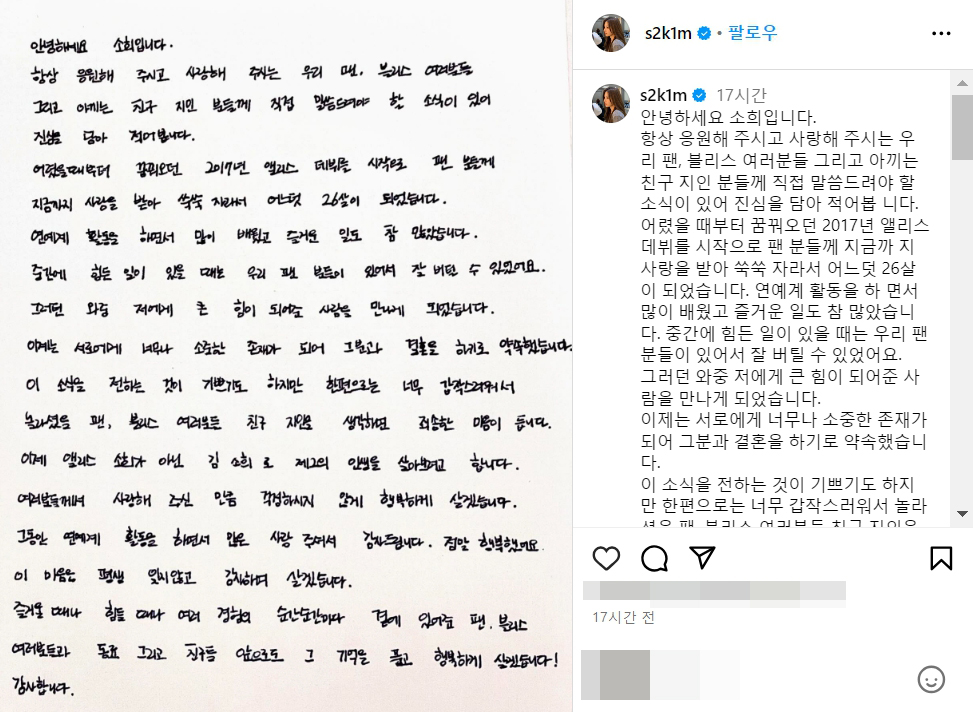 안녕하세요 소희입니다.
항상 응원해 주시고 사랑해 주시는 우리 팬, 블리스 여러분들
그리고 아끼는 친구 지인 분들께 직접 말씀드려야 할 소식이 있어
진심을 담아 적어봅니다.
어렸을때부터 꿈꿔오던 2017년 앨리스 데뷔를 시작으로 팬 분들께
지금까지 사랑을 받아 쑥쑥 자라서 어느덧 26살이 되었습니다.
연예계 활동을 하면서 많이 배웠고 즐거운 일도 참 많았습니다.
중간에 힘든 일이 있을 때는 우리 팬 분들이 있어서 잘 버틸 수 있었어요..
그러던 와중 저에게 큰 힘이 되어준 사람을 만나게 되었습니다.
이제는 서로에게 너무나 소중한 존재가 되어 그분과 결혼을 하기로 약속했습니다.
이 소식을 전하는 것이 기쁘기도 하지만 한편으로는 너무 갑작스러워서
놀라셨을 팬, 블리스 여러분들 친구 지인을 생각하면 죄송한 마음이 듭니다.
이제 앨리스 소희가 아닌 김 소희 로 제2의 인생을 살아보려고 합니다.
여러분들께서 사랑해 주신 만큼 걱정하시지 않게 행복하게 살겠습니다.
그동안 연예계 활동을 하면서 많은 사랑 주셔서 감사드립니다. 정말 행복했어요
이 마음은 평생 잊지않고 감사하며 살겠습니다.
즐거울 때나 힘들 때나 여러 경험의 순간순간마다 곁에 있어준 팬, 블리스
여러분들과 동료 그리고 친구들 앞으로도 그 기억을 품고 행복하게 살겠습니다!
감사합니다.
s2k1m • 팔로우
s2k1m 17시간
안녕하세요 소희입니다.
항상 응원해 주시고 사랑해 주시는 우
리 팬, 블리스 여러분들 그리고 아끼는
친구 지인 분들께 직접 말씀드려야 할
소식이 있어 진심을 담아 적어봅 니다.
어렸을 때부터 꿈꿔오던 2017년 앨리스
데뷔를 시작으로 팬 분들께 지금까 지
사랑을 받아 쑥쑥 자라서 어느덧 26살
이 되었습니다. 연예계 활동을 하 면서
많이 배웠고 즐거운 일도 참 많았습니
다. 중간에 힘든 일이 있을 때는 우리 팬
분들이 있어서 잘 버틸 수 있었어요.
그러던 와중 저에게 큰 힘이 되어준 사
람을 만나게 되었습니다.
이제는 서로에게 너무나 소중한 존재가
되어 그분과 결혼을 하기로 약속했습니
다.
이 소식을 전하는 것이 기쁘기도 하지
만 한편으로는 너무 갑작스러워서 놀라
셨을 팬, 블리스 여러분들 친구 지인을
17시간 전